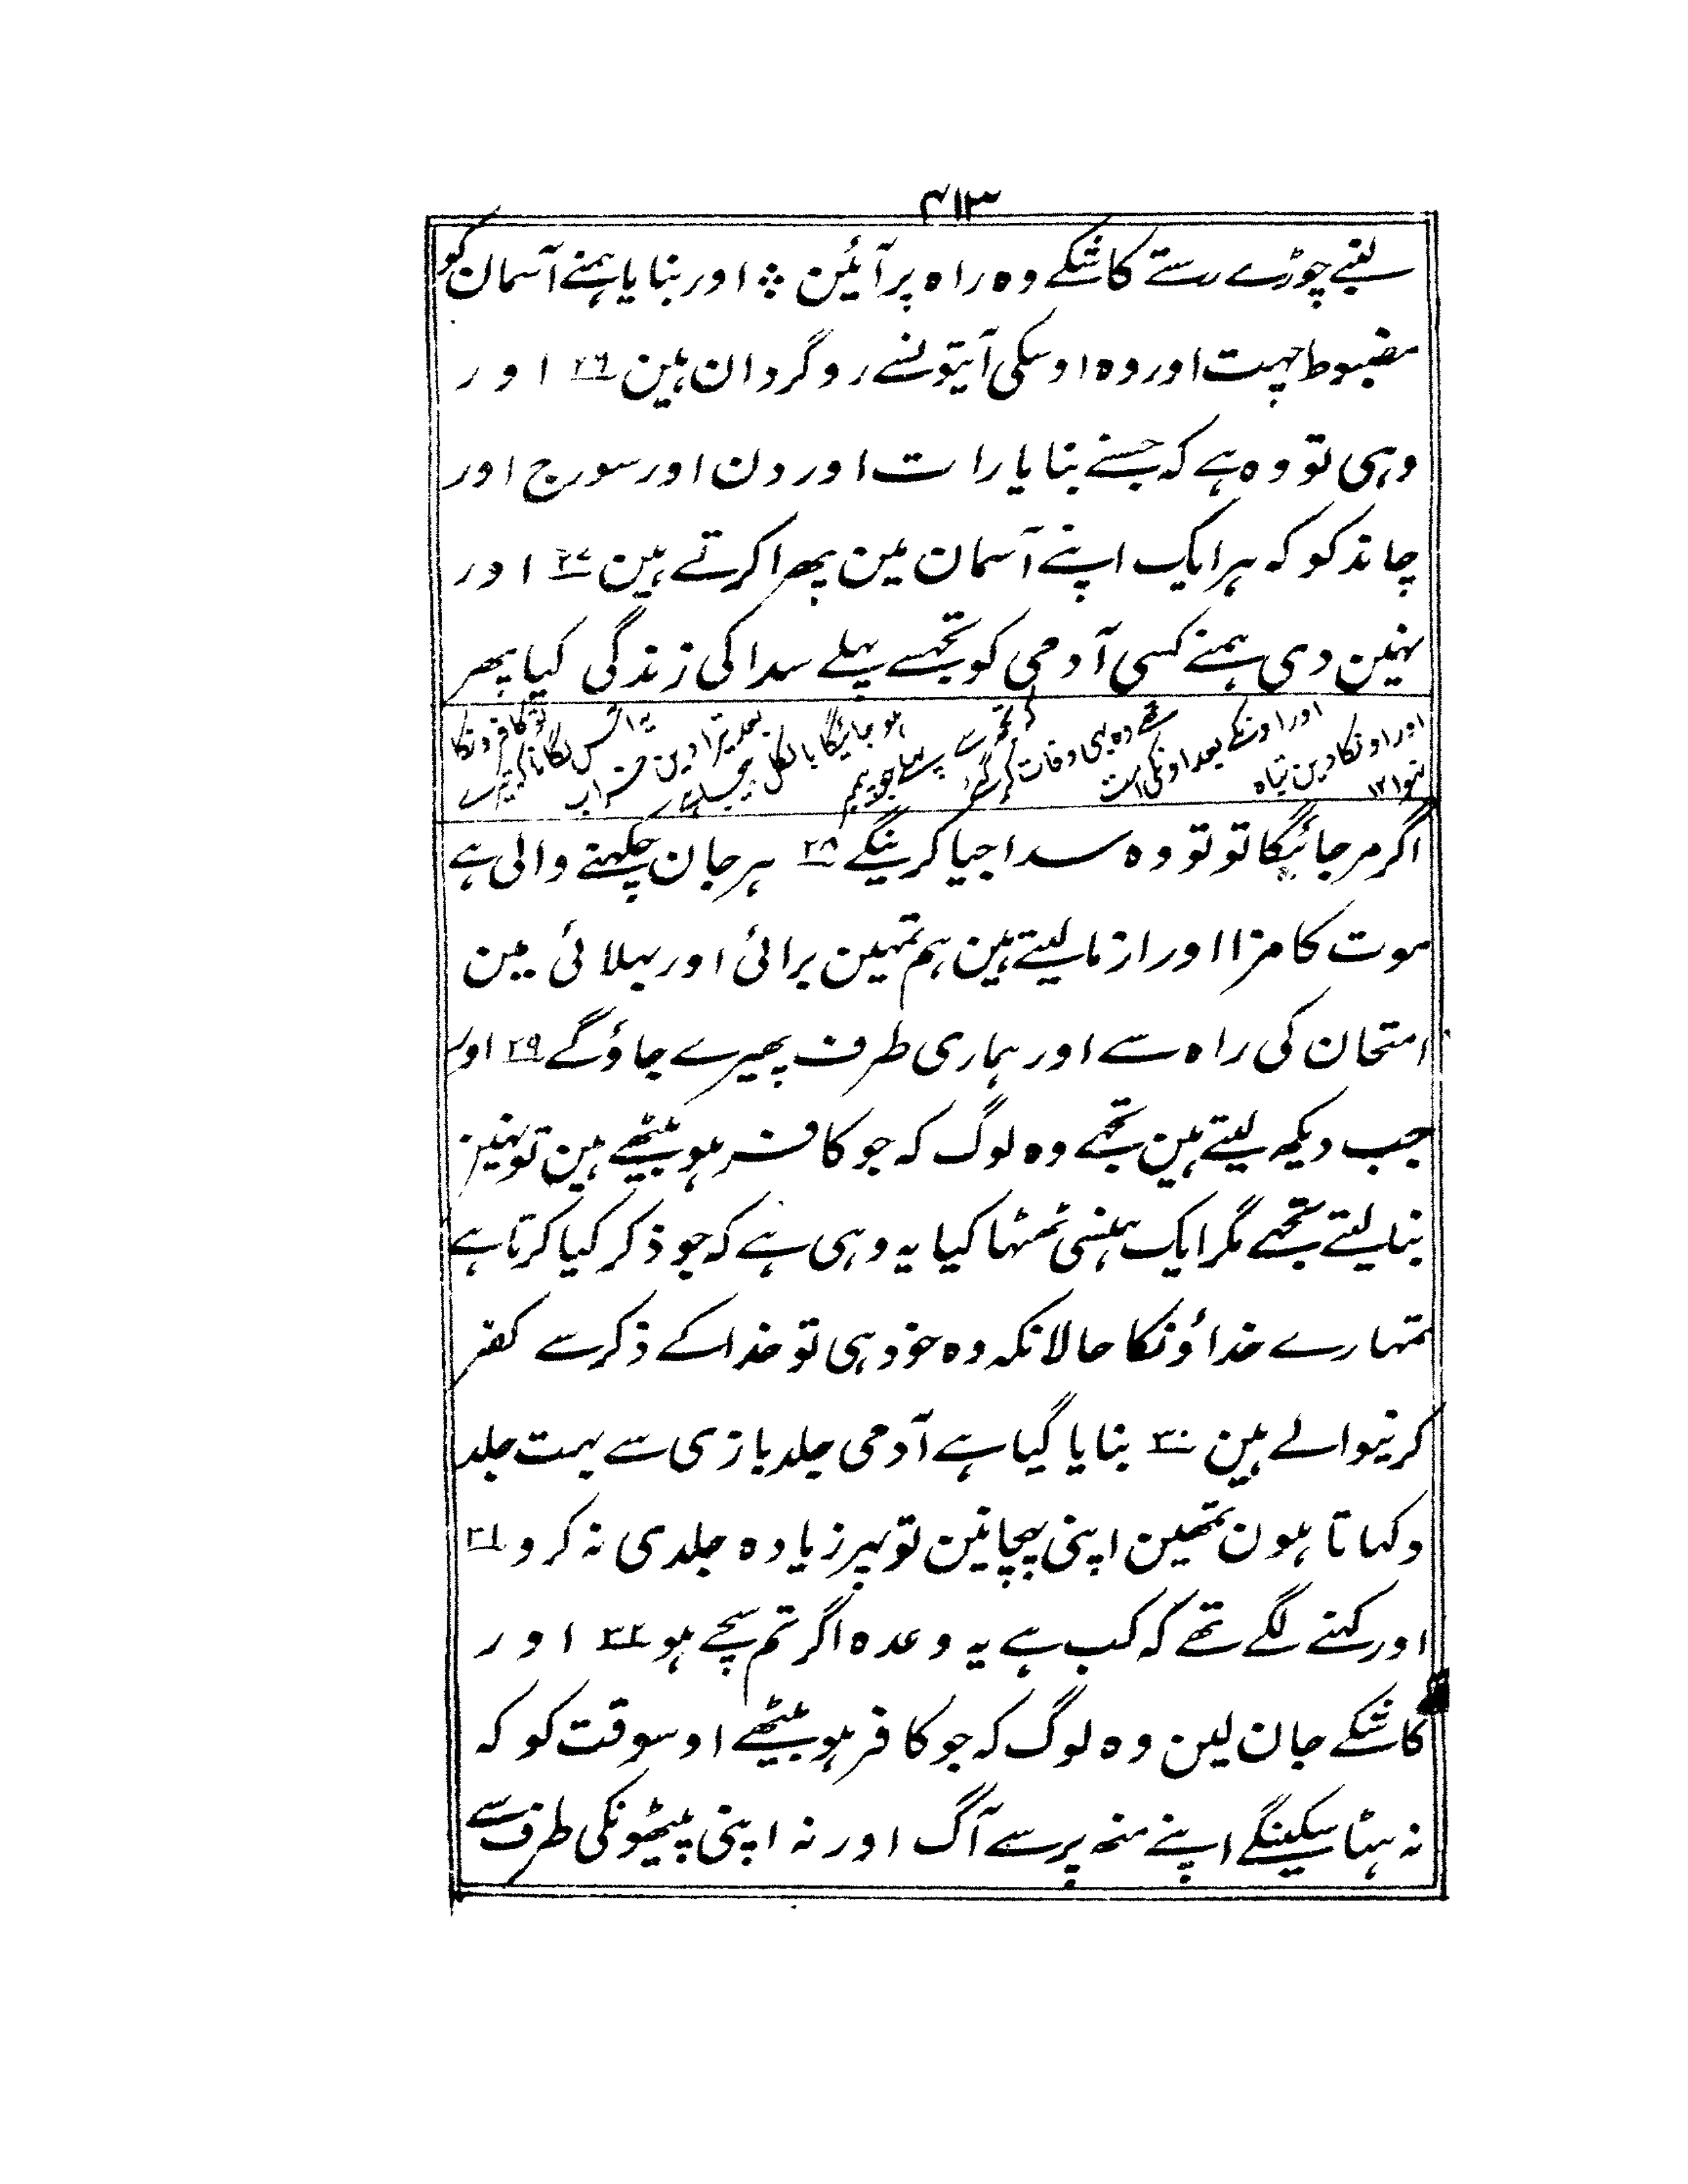 ۴۱۳
لنبے چوڑے رستے کاشکے وہ راہ پر آئین ؞ اور بنایا ہمنے آسمان کو
مضبوط چہت اور وہ اوسکی آیتونسے روگردان ہین ۲۶ اور
وہی تو وہ ہے کہ جسنے بنایا رات اور دن اور سورج اور
چاند کو کہ ہر ایک اپنے آسمان مین پھرا کرتے ہین ۲۷ اور
نہین دی ہمنے کسی آدمی کو تجھسے پہلے سدا کی زندگی کیا پھر
یہ اس لگانا کہ تیرے
بعد تیرا دین خراب
ہو جائیگا بالکل بیجا ہے
کہ تجھ سے پہلے جو ہم
تھے وہ بھی وفات کر گئے
اور اونکے بعد اونکی امت
اور اونکا دین تباہ
نہوا ۱۲
اگر مر جائیگا تو تو وہ سدا جیا کرینگے ۲۸ ہر جان چکہنے والی ہے
موت کا مزا اور ازما لیتے ہین ہم تمہین برائی اور بہلائی مین
امتحان کی راہ سے اور ہماری طرف پھیرے جاؤگے ۲۹ اور
جب دیکہ لیتے ہین تجھے وہ لوگ کہ جو کافر ہو بیٹھے ہین تو نہین
بنا لیتے تجھے مگر ایک ہنسی ٹھٹہا کیا یہ وہی ہے کہ جو ذکر کیا کرتا ہے
تمہارے خداؤنکا حالانکہ وہ خود ہی تو خدا کے ذکر سے کفر
کرنیوالے ہین ۳۰ بنایا گیا ہے آدمی جلد بازی سے بہت جلد
دکہاتا ہون تمھین اپنی پہچانین تو پہر زیادہ جلدی نہ کرو ۳۱
اور کہنے لگے تھے کہ کب ہے یہ وعدہ اگر تم سچے ہو ۳۲ اور
کاشکے جان لین وہ لوگ کہ جو کافر ہو بیٹھے اوسوقت کو کہ
نہ ہٹا سکینگے اپنے منھ پر سے آگ اور نہ اپنی پیٹھونکی طرف سے